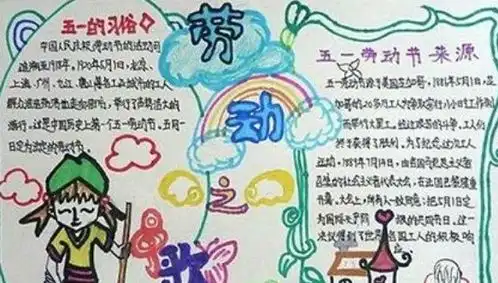 五一的习俗
中国人民庆祝劳动节的活动可
追溯至1918年，1920年5月1日，北京、
上海、广州、九江、唐山等各工业城市的工人
群众浩浩荡荡地走向街市，举行了声势浩大的
游行，这是中国历史上第一个五一劳动节，五月一
日定为法定的劳动节。
劳
动
之
歌
五一劳动节来源
五一劳动节源于美国芝加哥，1886年5月1日，芝
加哥的20多万工人为争取实行八小时工作制
而举行大罢工，经过艰苦的斗争，工人们
终于获得了胜利。为了纪念这次工人
运动，1889年7月14日，由各国马克思主义者
召集的社会主义者代表大会，在法国巴黎隆重
开幕。大会上，
一致同意，把5月1日定
为国际无产阶
级的共同节日，这一
决议得到了世界各国工人的积极响